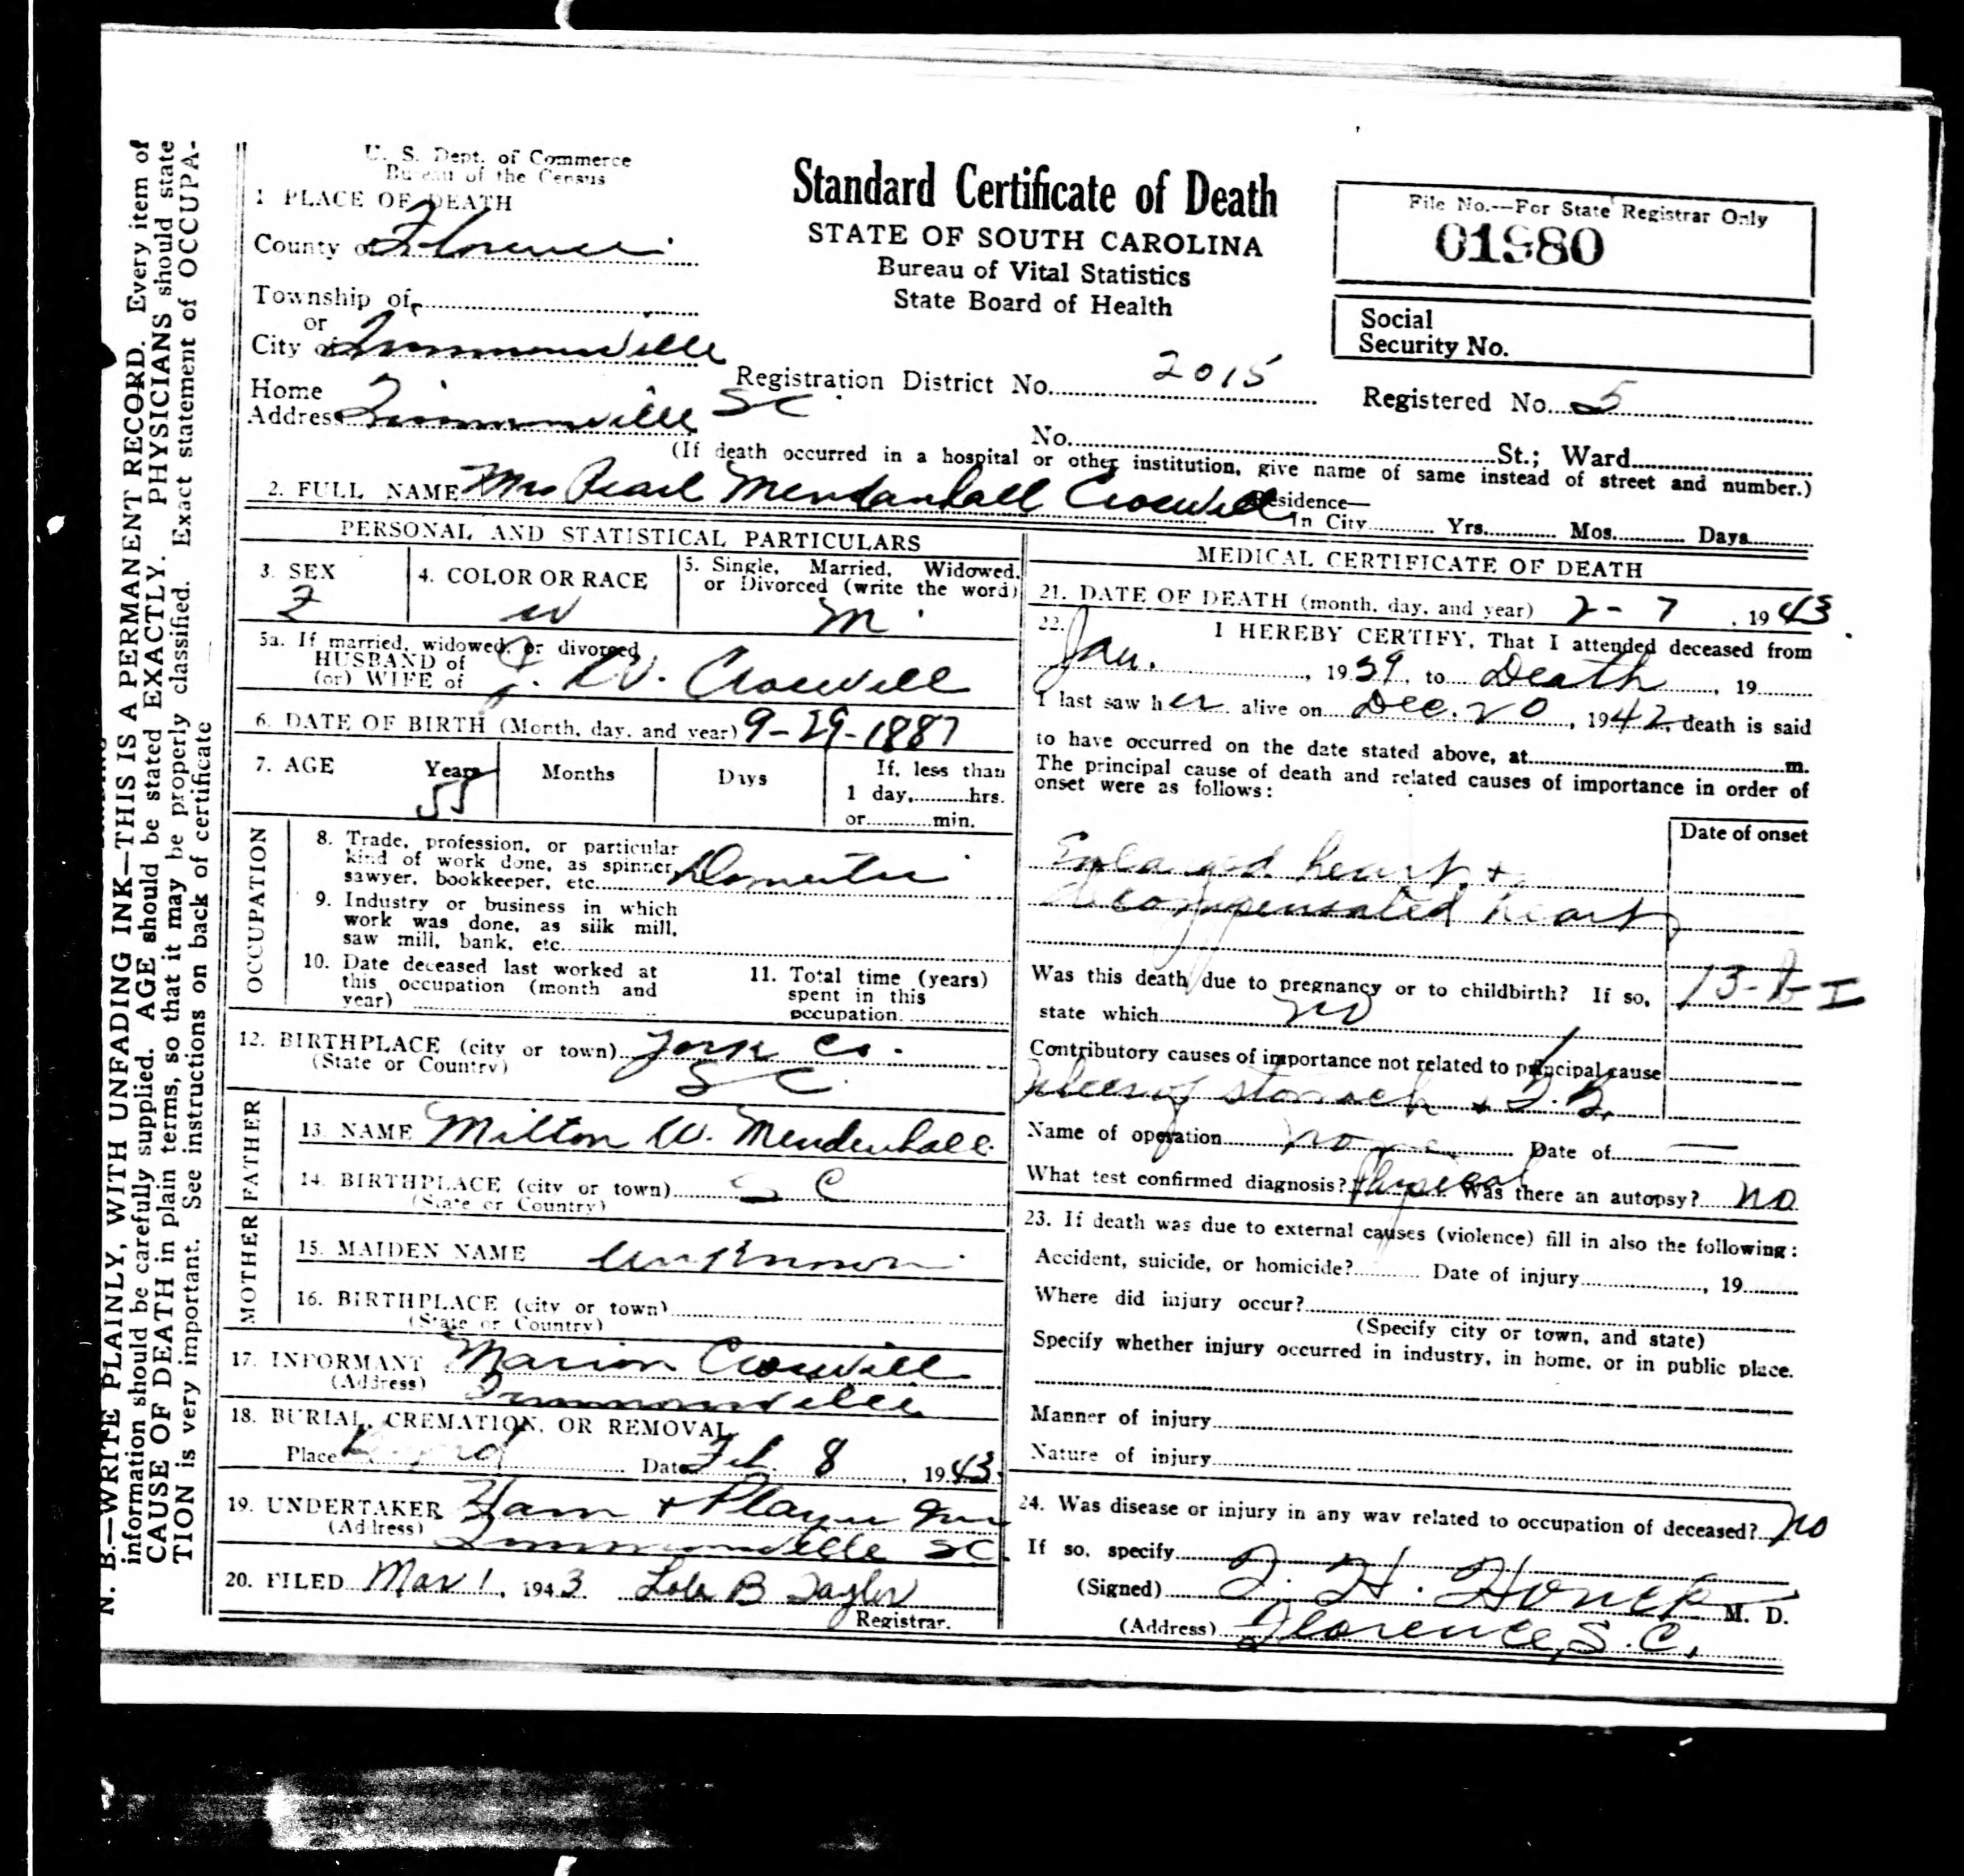 U. S. Dept. of Commerce
Bureau of the Census
Standard Certificate of Death
STATE OF SOUTH CAROLINA
Bureau of Vital Statistics
State Board of Health
File No.—For State Registrar Only
01980
Social
Security No.
1 PLACE OF DEATH
County of Florence
Township of
or
City of Timmonsville
Home
Address Timmonsville SC
Registration District No. 2015
Registered No. 5
No. St.; Ward
(If death occurred in a hospital or other institution, give name of same instead of street and number.)
2. FULL NAME Mrs Pearl Mendanhall Croswell
Residence—
In City Yrs. Mos. Days
PERSONAL AND STATISTICAL PARTICULARS
3. SEX
F
4. COLOR OR RACE
W
5. Single, Married, Widowed,
or Divorced (write the word)
M
5a. If married, widowed, or divorced
HUSBAND of
(or) WIFE of J. W. Croswell
6. DATE OF BIRTH (Month, day, and year) 9-29-1887
7. AGE
Years
55
Months
Days
If less than
1 day, hrs.
or min.
OCCUPATION
8. Trade, profession, or particular
kind of work done, as spinner,
sawyer, bookkeeper, etc. Domestic
9. Industry or business in which
work was done, as silk mill,
saw mill, bank, etc.
10. Date deceased last worked at
this occupation (month and
year)
11. Total time (years)
spent in this
occupation
12. BIRTHPLACE (city or town) York Co.
(State or Country) SC
FATHER
13. NAME Milton W. Mendenhall
14. BIRTHPLACE (city or town) S C
(State or Country)
MOTHER
15. MAIDEN NAME Unknown
16. BIRTHPLACE (city or town)
(State or Country)
17. INFORMANT Marion Croswell
(Address) Timmonsville
18. BURIAL, CREMATION, OR REMOVAL
Place Date Feb. 8, 1943
19. UNDERTAKER Ham + Player
(Address) Timmonsville SC
20. FILED Mar 1, 1943 Lola B Taylor
Registrar.
MEDICAL CERTIFICATE OF DEATH
21. DATE OF DEATH (month, day, and year) 2-7, 1943
22. I HEREBY CERTIFY, That I attended deceased from
Jan., 1939, to Death, 19
I last saw her alive on Dec. 20, 1942, death is said
to have occurred on the date stated above, at m.
The principal cause of death and related causes of importance in order of
onset were as follows:
Date of onset
Enlarged heart +
decompensated heart
Was this death due to pregnancy or to childbirth? If so,
state which no
Contributory causes of importance not related to principal cause
Ulcer of stomach + T.B.
Name of operation none Date of —
What test confirmed diagnosis? Physical Was there an autopsy? no
23. If death was due to external causes (violence) fill in also the following:
Accident, suicide, or homicide? Date of injury, 19
Where did injury occur?
(Specify city or town, and state)
Specify whether injury occurred in industry, in home, or in public place.
Manner of injury
Nature of injury
24. Was disease or injury in any way related to occupation of deceased? no
If so, specify
(Signed) M. D.
(Address) Florence, S. C.
N. B.—WRITE PLAINLY, WITH UNFADING INK—THIS IS A PERMANENT RECORD. Every item of
information should be carefully supplied. AGE should be stated EXACTLY. PHYSICIANS should state
CAUSE OF DEATH in plain terms, so that it may be properly classified. Exact statement of OCCUPA-
TION is very important. See instructions on back of certificate